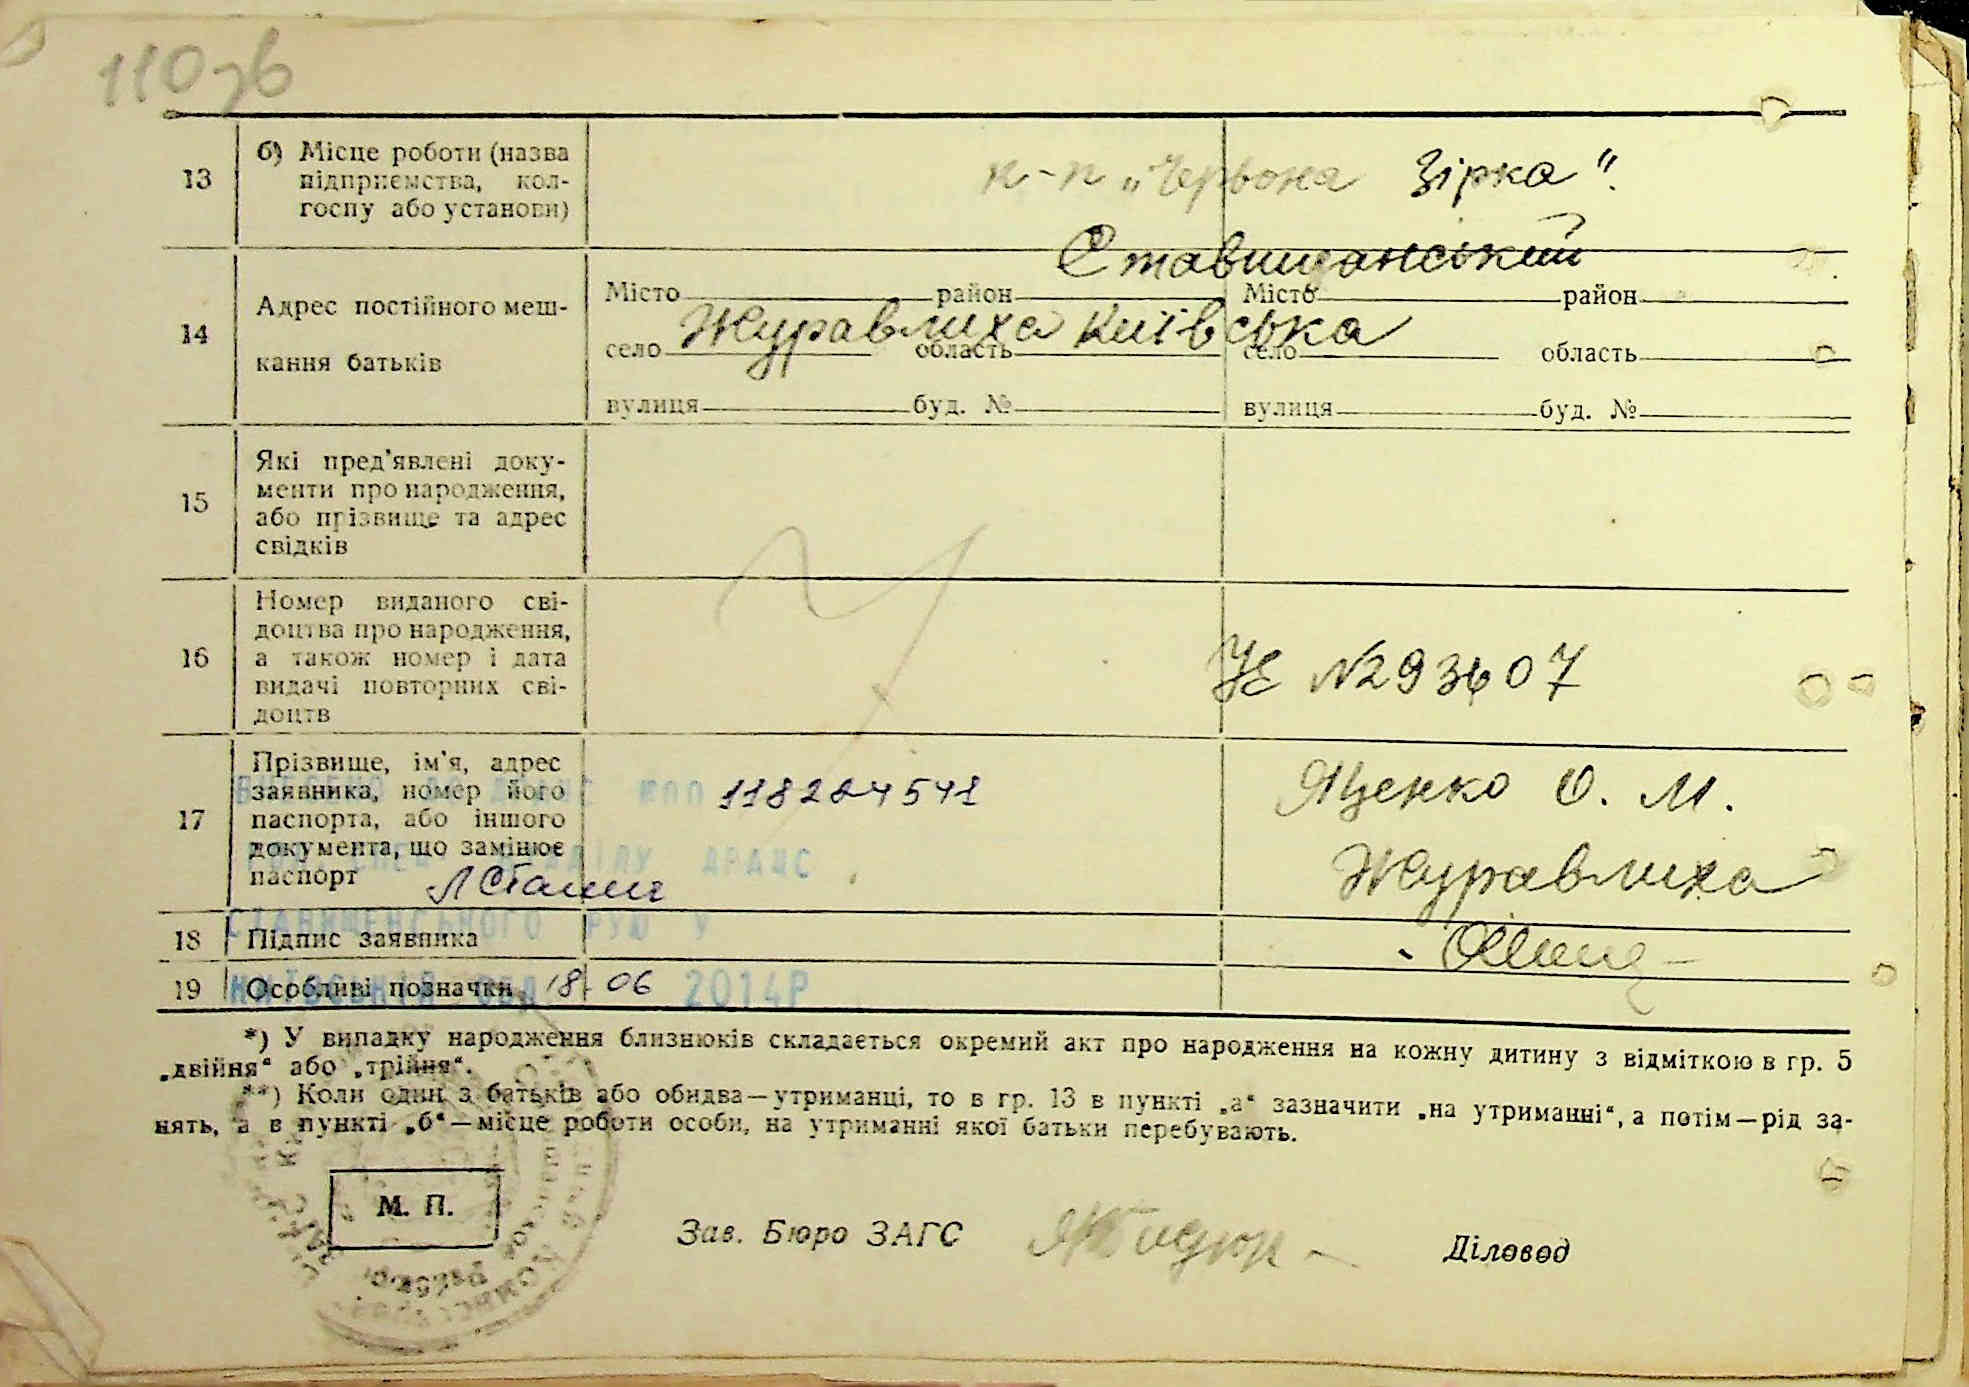 110зв
13
б) Місце роботи (назва
підприємства, кол-
госпу або установи)
к-п „Червона Зірка".
Ставищанський
14
Адрес постійного меш-
кання батьків
Місто район Місто район
село Журавлиха область Київська село область
вулиця буд. № вулиця буд. №
15
Які пред'явлені доку-
менти про народження,
або прізвище та адрес
свідків
16
Номер виданого сві-
доцтва про народження,
а також номер і дата
видачі повторних сві-
доцтв
17
Прізвище, ім'я, адрес
заявника, номер його
паспорта, або іншого
документа, що замінює
паспорт
Яценко О. М.
Журавлиха
ВІДДІЛУ ДРАЦС
СТАВИЩЕНСЬКОГО РУЮ У
18 Підпис заявника
19 Особливі позначки
18 06 2014Р
*) У випадку народження близнюків складається окремий акт про народження на кожну дитину з відміткою в гр. 5
„двійня" або „трійня".
**) Коли один з батьків або обидва—утриманці, то в гр. 13 в пункті „а" зазначити „на утриманні", а потім—рід за-
нять, а в пункті „б"—місце роботи особи, на утриманні якої батьки перебувають.
М. П.
Зав. Бюро ЗАГС
Діловод